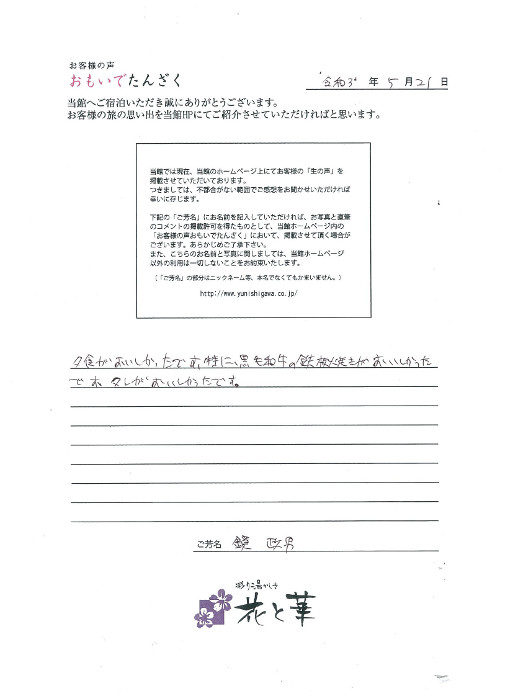 お客様の声
おもいでたんざく
令和3年5月21日
当館へご宿泊いただき誠にありがとうございます。
お客様の旅の思い出を当館HPにてご紹介させていただければと思います。
当館では現在、当館のホームページ上にてお客様の「生の声」を
掲載させていただいております。
つきましては、不都合がない範囲でご感想をお聞かせいただければ
幸いに存じます。
下記の「ご芳名」にお名前を記入していただければ、お写真と直筆
のコメントの掲載許可を得たものとして、当館ホームページ内の
「お客様の声おもいでたんざく」において、掲載させて頂く場合が
ございます。あらかじめご了承下さい。
また、こちらのお名前と写真に関しましては、当館ホームページ
以外の利用は一切しないことをお約束いたします。
(「ご芳名」の部分はニックネーム等、本名でなくてもかまいません。)
http://www.yunishigawa.co.jp/
夕食がおいしかったです。特に、黒毛和牛の鉄板焼きがおいしかった
です。夕しがおいしかったです。
ご芳名 鏡 政男
花と華